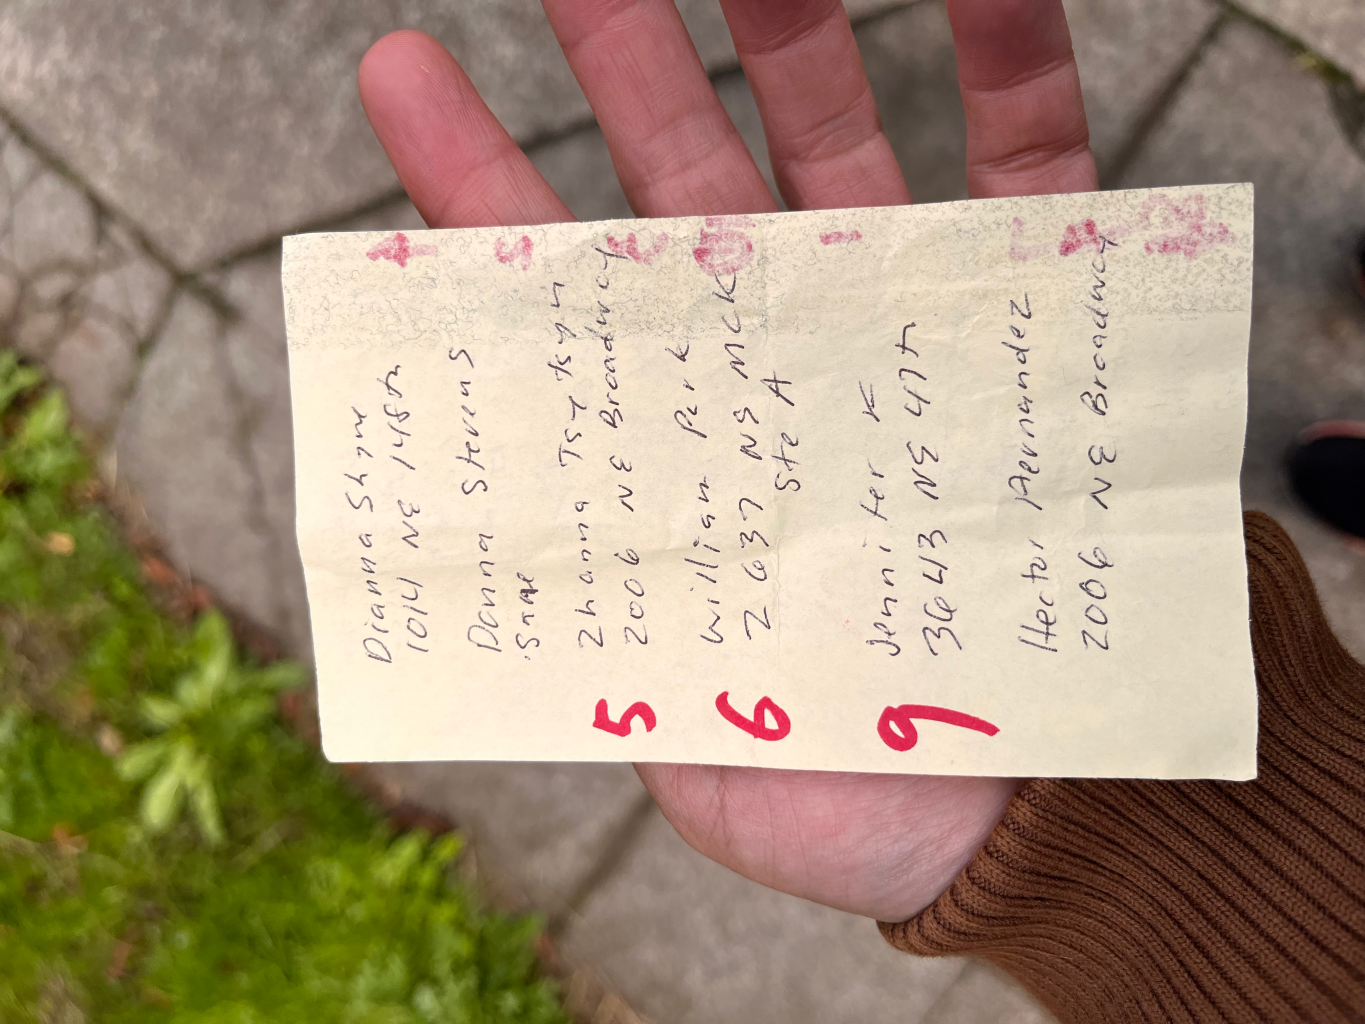 Dianna Shyne
1014 NE 148th
Donna Stevens
Same
Zhanna Tsy Tsyn
5 2006 NE Broadway
William Park
6 2637 NE MCK
Ste A
Jennifer K
9 3643 NE 47th
Hector Hernandez
2006 NE Broadway